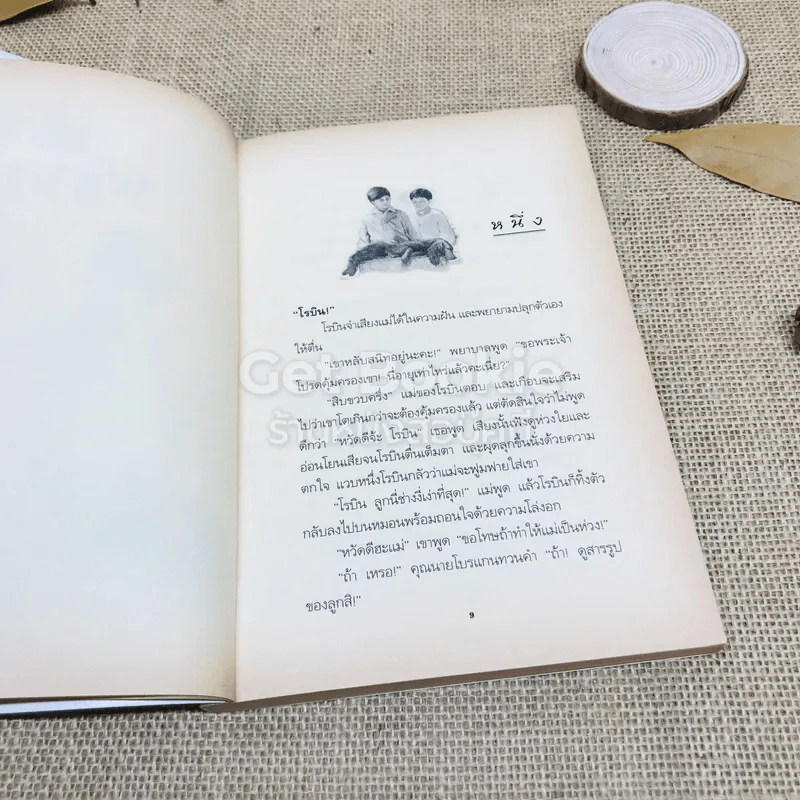 หนึ่ง
“โรบิน!”
โรบินจำเสียงแม่ได้ในความฝัน และพยายามปลุกตัวเอง
ให้ตื่น
“เขาหลับสนิทอยู่นะคะ!” พยาบาลพูด “ขอพระเจ้า
โปรดคุ้มครองเขา! นี่อายุเท่าไหร่แล้วคะเนี่ย?”
“สิบขวบครึ่ง” แม่ของโรบินตอบ และเกือบจะเสริม
ไปว่าเขาโตเกินกว่าจะต้องคุ้มครองแล้ว แต่ตัดสินใจว่าไม่พูด
ดีกว่า “หวัดดีจ้ะ โรบิน” เธอพูด เสียงนั้นฟังดูห่วงใยและ
อ่อนโยนเสียจนโรบินตื่นเต็มตา และผุดลุกขึ้นนั่งด้วยความ
ตกใจ แวบหนึ่งโรบินกลัวว่าแม่จะฟูมฟายใส่เขา
“โรบิน ลูกนี่ช่างงี่เง่าที่สุด!” แม่พูด แล้วโรบินก็ทิ้งตัว
กลับลงไปบนหมอนพร้อมถอนใจด้วยความโล่งอก
“หวัดดีฮะแม่” เขาพูด “ขอโทษถ้าทำให้แม่เป็นห่วง!”
“ถ้า เหรอ!” คุณนายโบรแกนทวนคำ “ถ้า! ดูสารรูป
ของลูกสิ!”
9
Get Bookie
ร้านหนังสือบุ๊คกี้